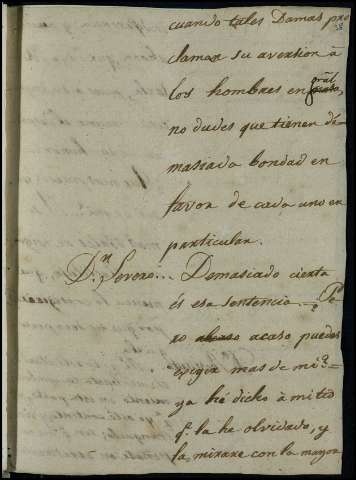 cuando tales Damas pro
claman su aversion à
los hombres en gràl
no dudes que tienen de
masiada bondad en
favor de cada uno en
particular.
Dⁿ. Severo... Demasiado cierta
és esa sentencia. = Pe
ro acaso puedes
exigir mas de mi? =
ya hé dicho à mi tio
qᵉ. la he olvidado, y
la mirare con la mayor